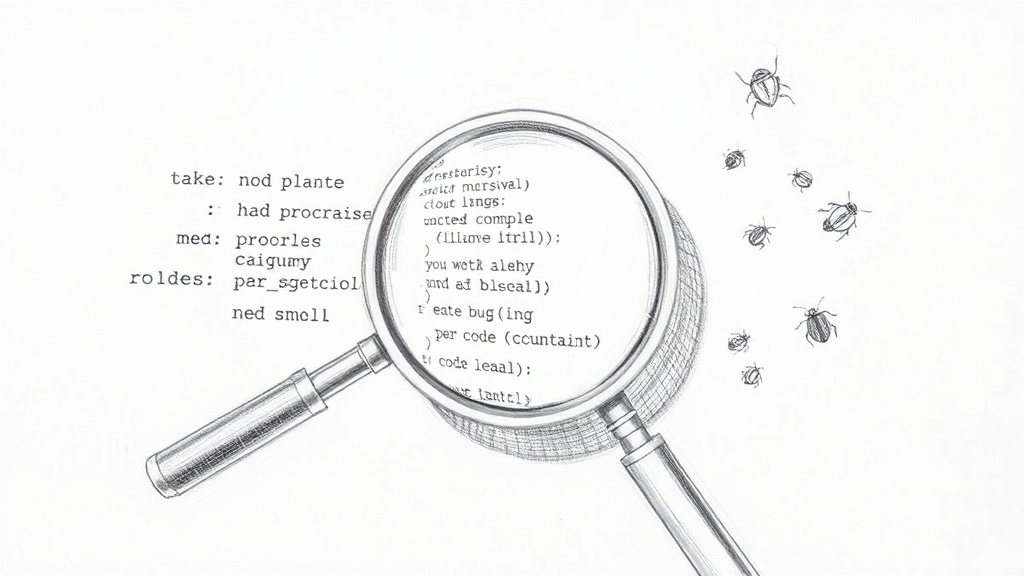 take: nod plante
: had procraise
med: proorles
caigumy
roldes: par_sgetciol
ned smoll
mersival)
clout lings:
uncted comple
(lllione itril));
)
you watk alehy
and af blseal])
)
eate bug(ing
per code (ccuntaint)
)
code leaal);